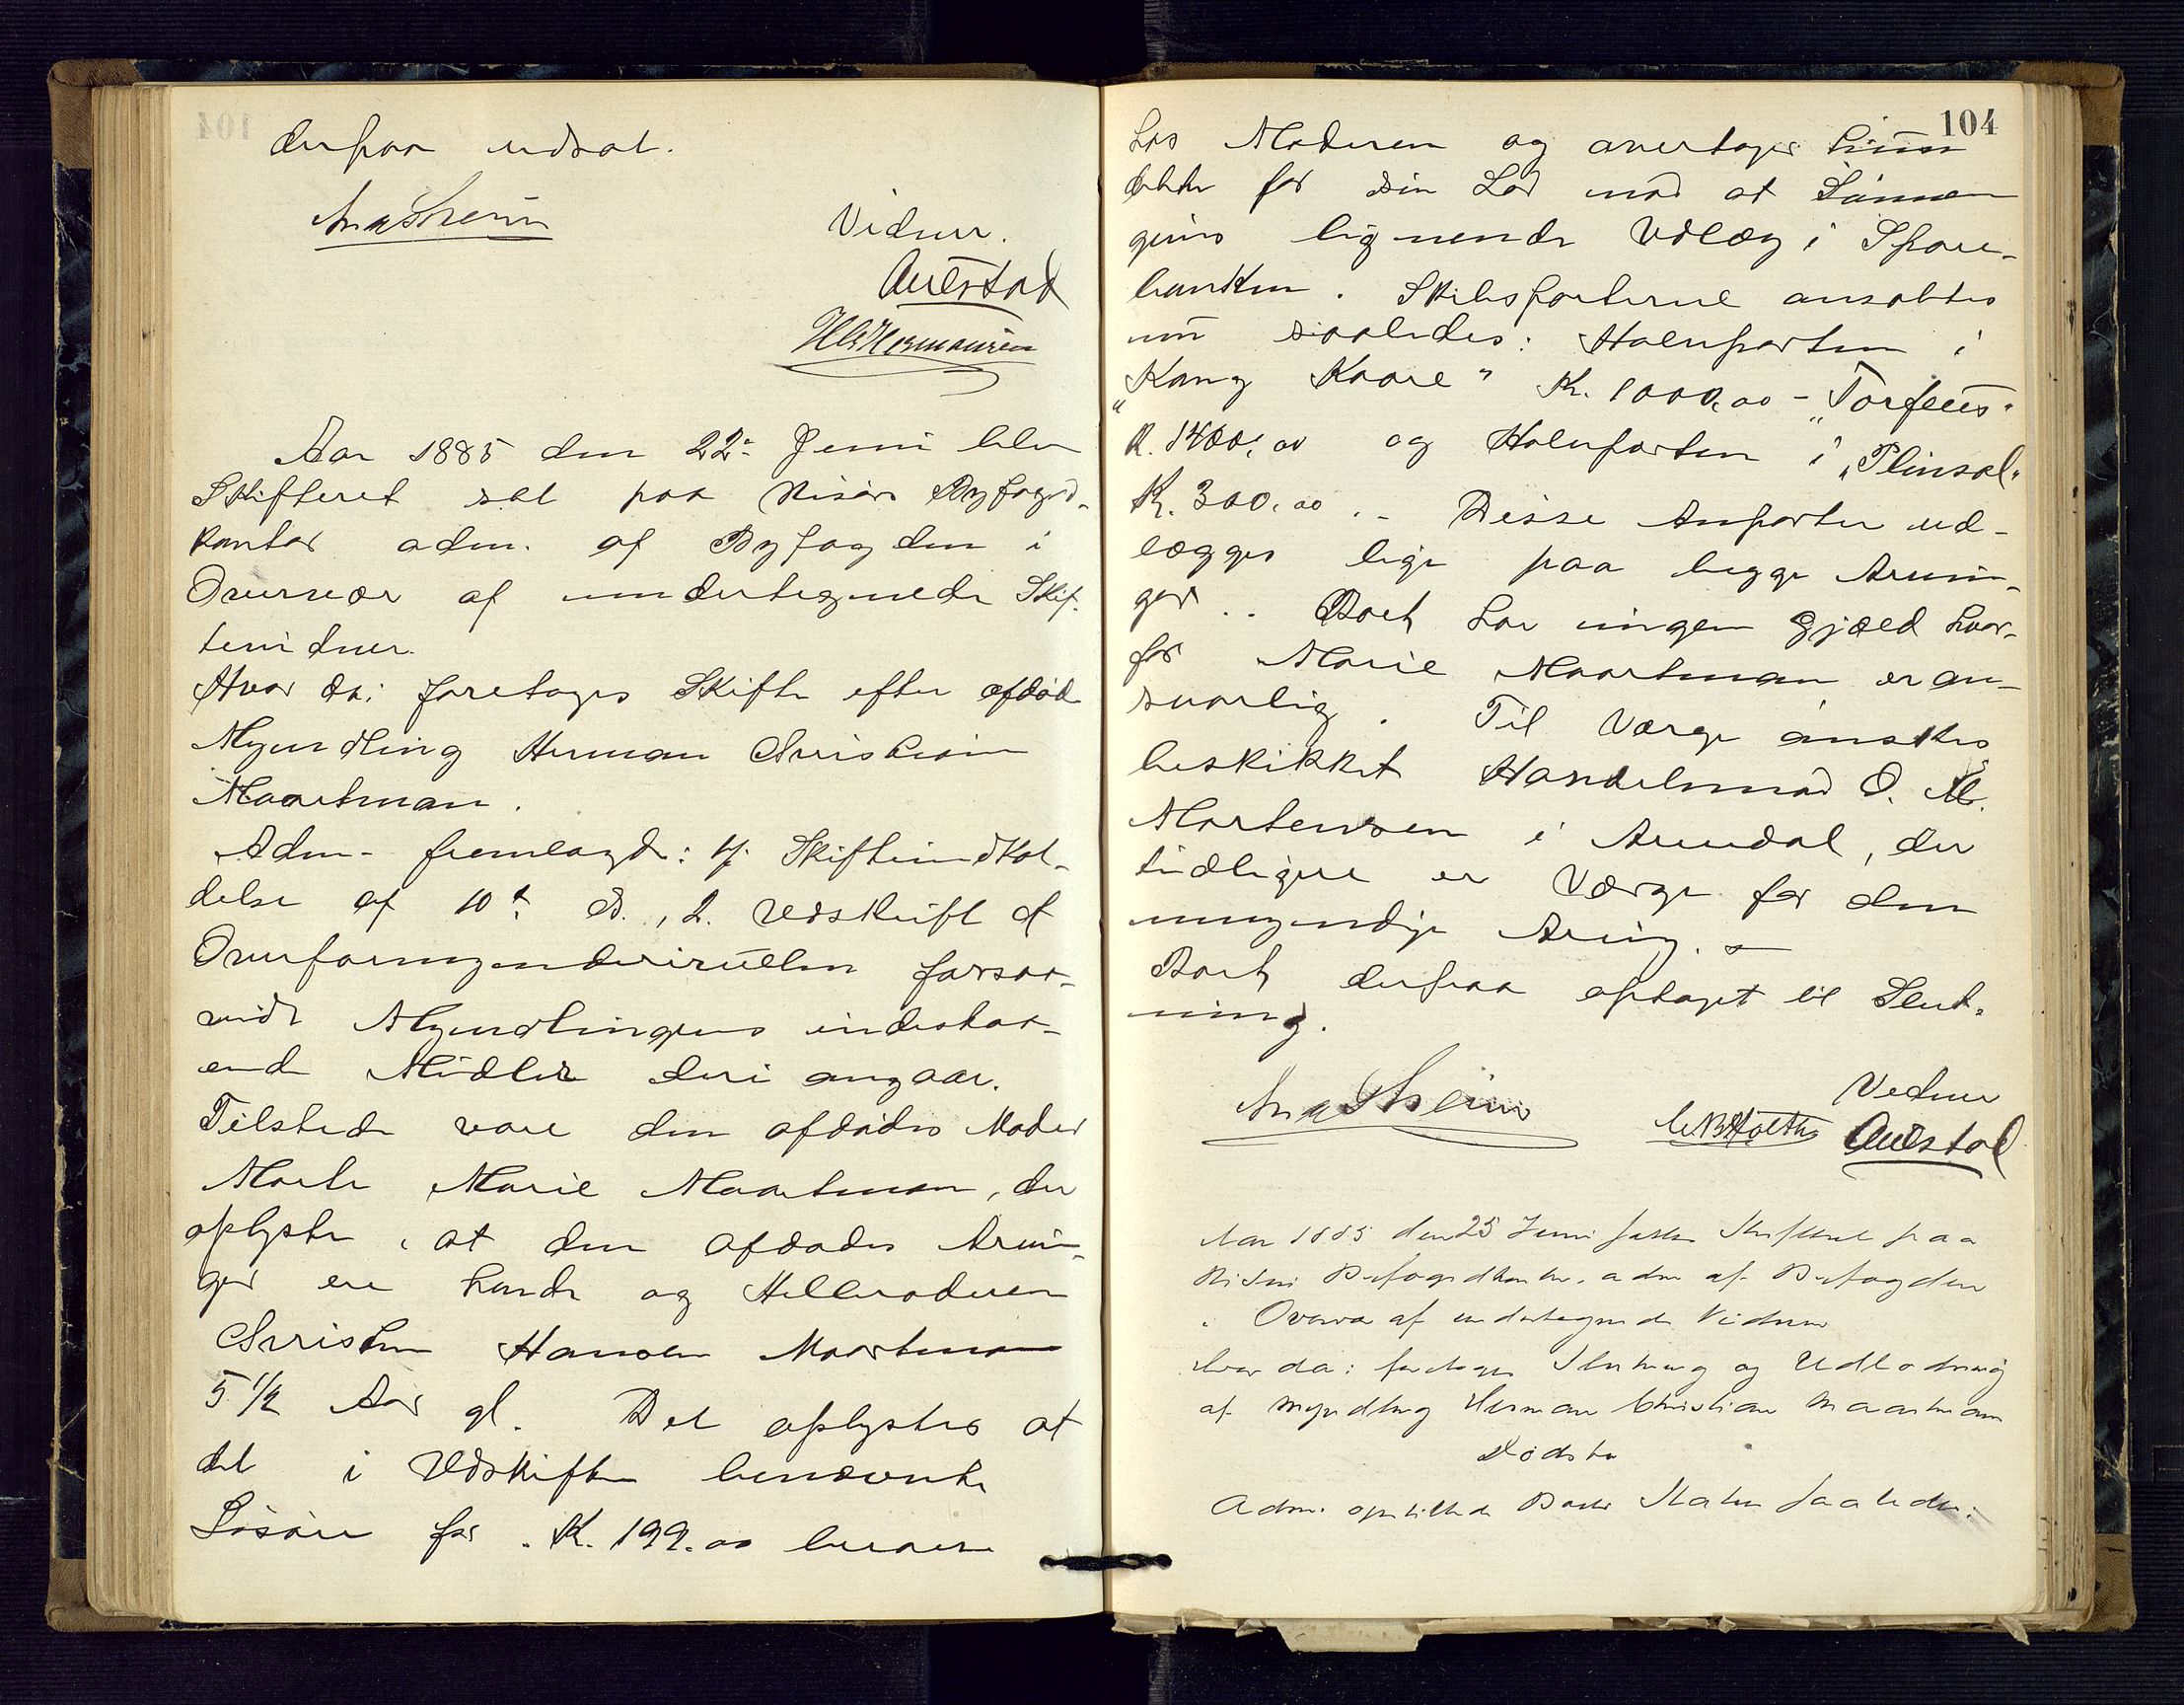 derpaa udsat.
Vidner.
Auestad
Aar 1885 den 22de Juni blev
Skifteret sat paa Risørs Byfoged-
kontor adm. af Byfogden i
Overvær af undertegnede Skif-
tevidner.
Hvor da: foretoges Skifte efter afdøde
Myndling Herman Christian
Maartman.
Adm. fremlagde: 1, Skifteindkal-
delse af 10de ds., 2. Udskrift af
Overformynderirullen forsaa-
vidt Myndlingens indestaa-
ende Midler deri angaar.
Tilstede vare den afdødes Moder
Marte Marie Maartman, der
oplyste, at den afdødes Arvin-
ger ere hende og Helbroderen
Christen Hansen Maartman
5 1/2 Aar gl. Det oplystes at
det i Udskriften benævnte
Løsøre for K. 199.00 beroer
104
hos Moderen og overtager hun
dette for sin Lod mod at Sønnen
gives lignende Udlæg i Spare-
banken. Skibsparterne ansattes
nu saaledes: Halvparten i
"Kong Kaare" K. 1000,00 - "Torfæus"
K. 1400,00 og Halvparten i "Plinsol"
K. 300,00.- Disse Anparter ud-
lægges lige paa begge Arvin-
ger.. Boet har ingen Gjæld hvor-
for Marie Maartman er an-
svarlig. Til Værge ønskes
beskikket Handelsmand O. M.
Mortensen i Arendal, der
tidligere er Værge for den
umyndige Arving. -
Boet derpaa optaget til Slut-
ning.
Vidner
Auestad
Aar 1885 den 25 Juni sattes Skifteret paa
Risørs Byfogedkontor, adm af Byfogden
i Overvær af undertegnede Vidner
hvor da: foretoges Slutning og Udlodning
af Myndling Herman Christian Maartmans
Dødsbo
Adm. opstillede Boets Status saaledes: